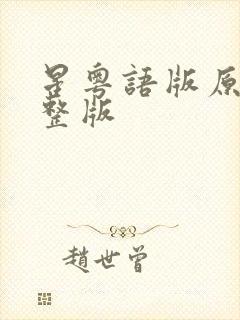 星粵語版原
整版
趙世曾